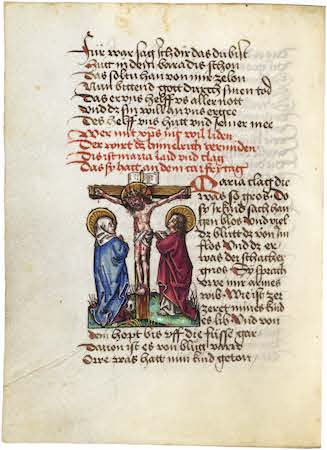 Für war sag ich dir das du bist
Hütt in dem baradis schon
Das soltu han von mir ze lon
Nun bittend gott durch sinen tod
Das er uns helff us aller nott
Und dz sin will an uns ergee
Des helff uns hütt und jemer mee
Wer mit xp̄s ih̄s wil liden
Der wirt dz himelrich
Dis ist maria laid und clag
Das sy hatt an dem carfrytag
Maria clag die
was so gros Do
sy ir kind sach han
gen blos Und viel
dz blütt dz von im
flos Und dz er
was der schacher
gnos Sy sprach
owe mir armes
wib Wie ist zer
zeret mines kind
es lib Und von
dem hopt bis uff die füsse gar
Davon ist es von blütt varw
Owe was hatt min kind geton